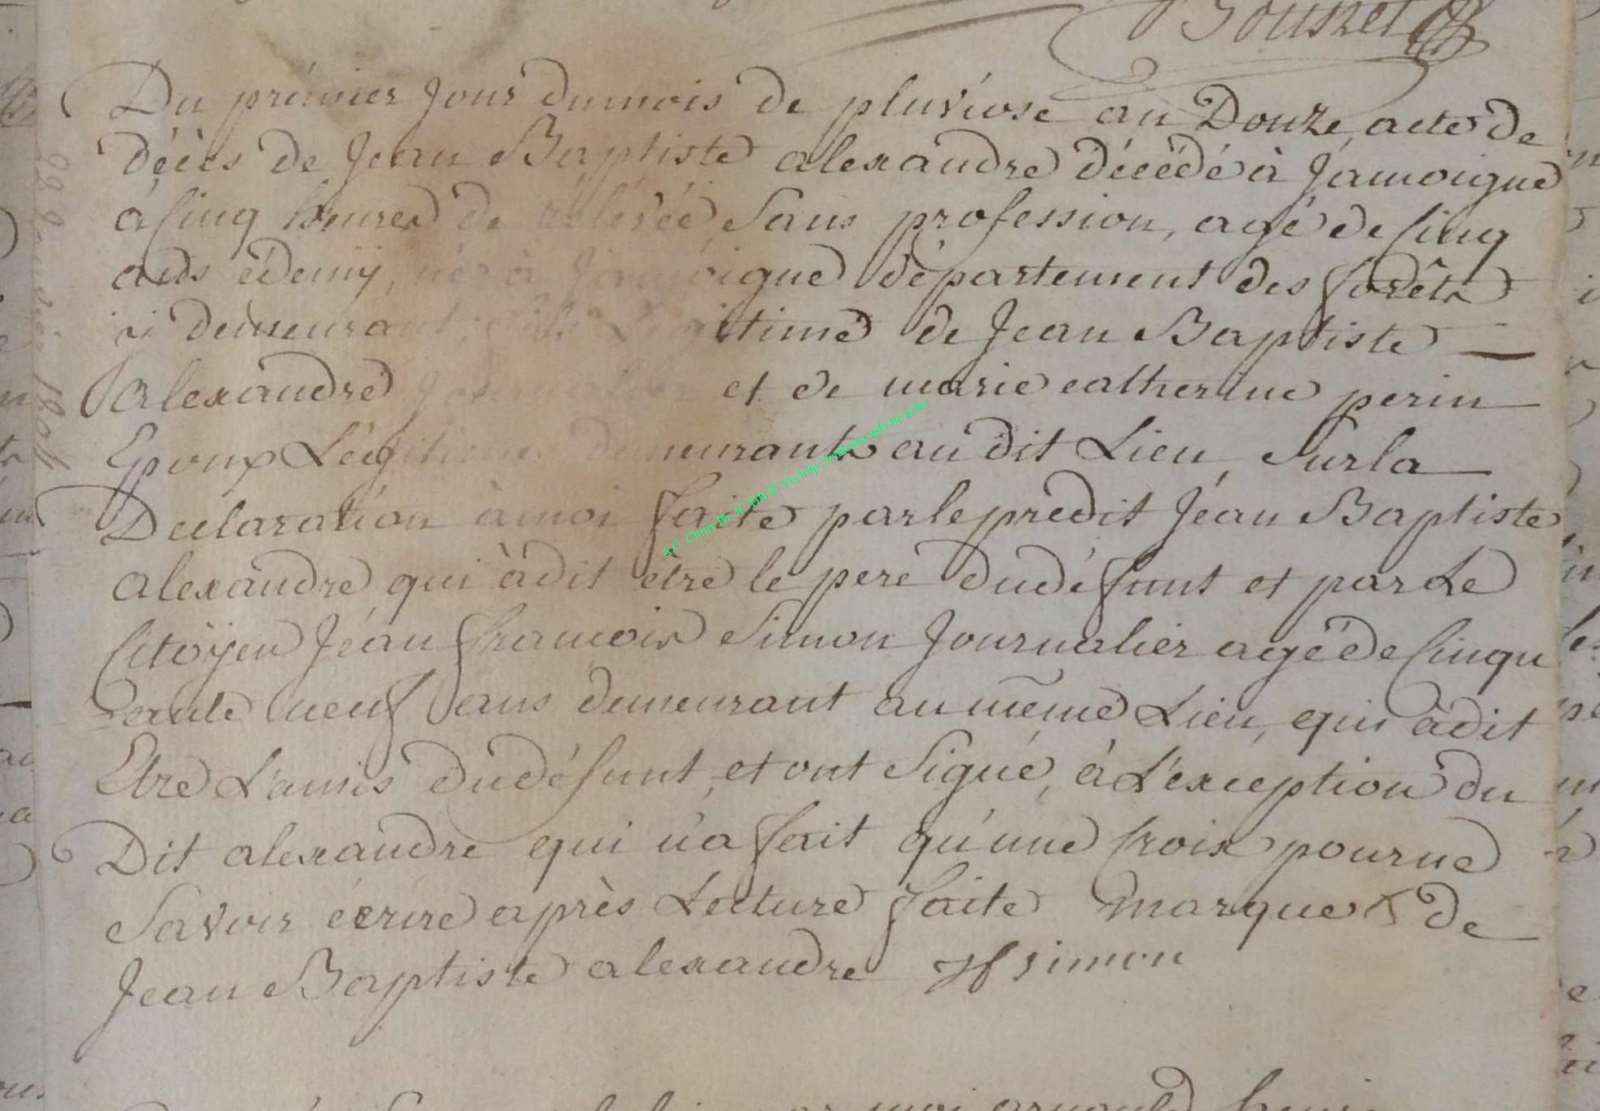 Bousret
Du prémier Jour du mois de pluviose an Douze, acte de
décès de Jean Baptiste alexandre décédé à Jámoigne
à cinq heures de rélévée Sans profession, agé de cinq
ans édemÿ, né à Jamoigne département des forêts
ici demeurant, fils Légitime de Jean Baptiste
alexandre Journalier et de marie catherine perin
Epoux Légitimes demeurants audit Lieu, Sur la
Déclaration à moi faite par le prédit Jéan Baptiste
alexandre qui à dit être le pere du défunt et par Le
Citoÿen Jéan francois Simon Journalier agé de Cinqu
ante neuf ans demeurant au même Lieu, qui à dit
Etre L'amis du défunt, et ont Signé, à L'exception du
Dit alexandre qui n'a fait qu'une Croix pour ne
Savoir écrire après Lecture faite Marque X de
Jean Baptiste alexandre JfSimon